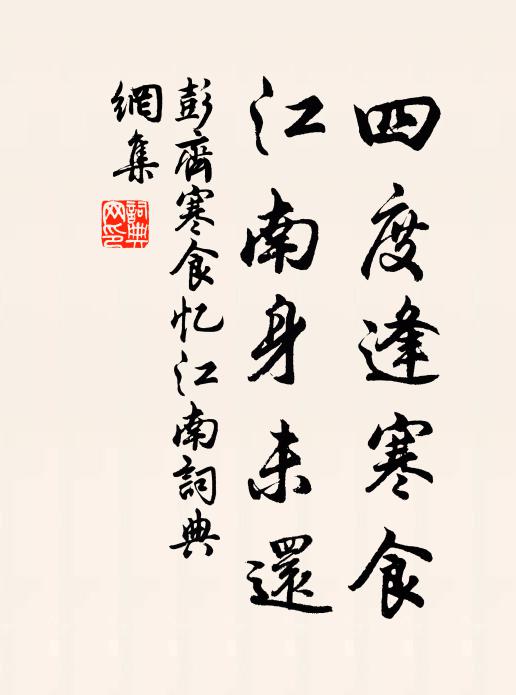 四度逢寒食
江南身未還
彭齊寒食忆江南詞典
網集
詞典
网印